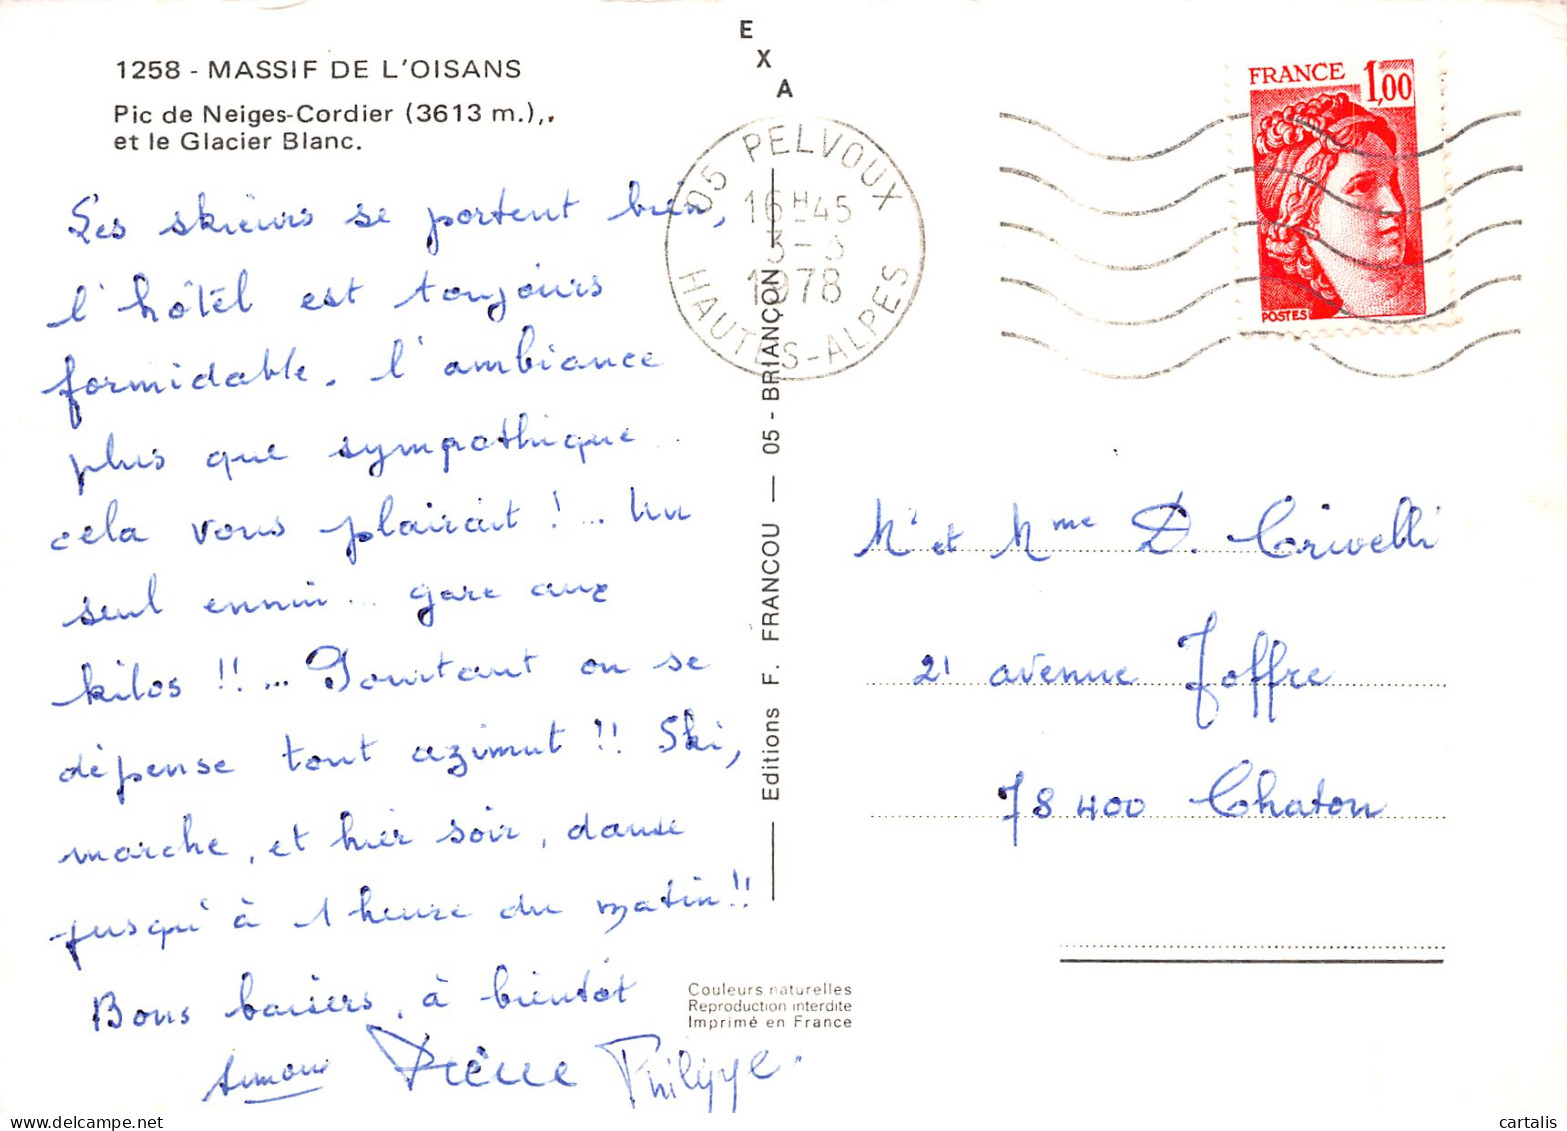 1258 - MASSIF DE L'OISANS
Pic de Neiges-Cordier (3613 m.),.
et le Glacier Blanc.
Les skieurs se portent bien,
l'hôtel est toujours
formidable. l'ambiance
plus que sympathique
cela vous plairait ! ... Un
seul ennui ... gare aux
kilos !! ... Pourtant on se
dépense tout azimut !! Ski,
marche, et hier soir, danse
jusqu'à 1 heure du matin !!
Bons baisers, à bientôt
Simone Pierre Philippe.
E
X
A
05 PELVOUX
16H45
3-3
1978
HAUTES-ALPES
Editions F. FRANCOU — 05 - BRIANÇON
FRANCE 1,00
POSTES
Mr et Mme D. Crivelli
21 avenue Joffre
78 400 Chatou
Couleurs naturelles
Reproduction interdite
Imprimé en France
delcampe.net
cartalis